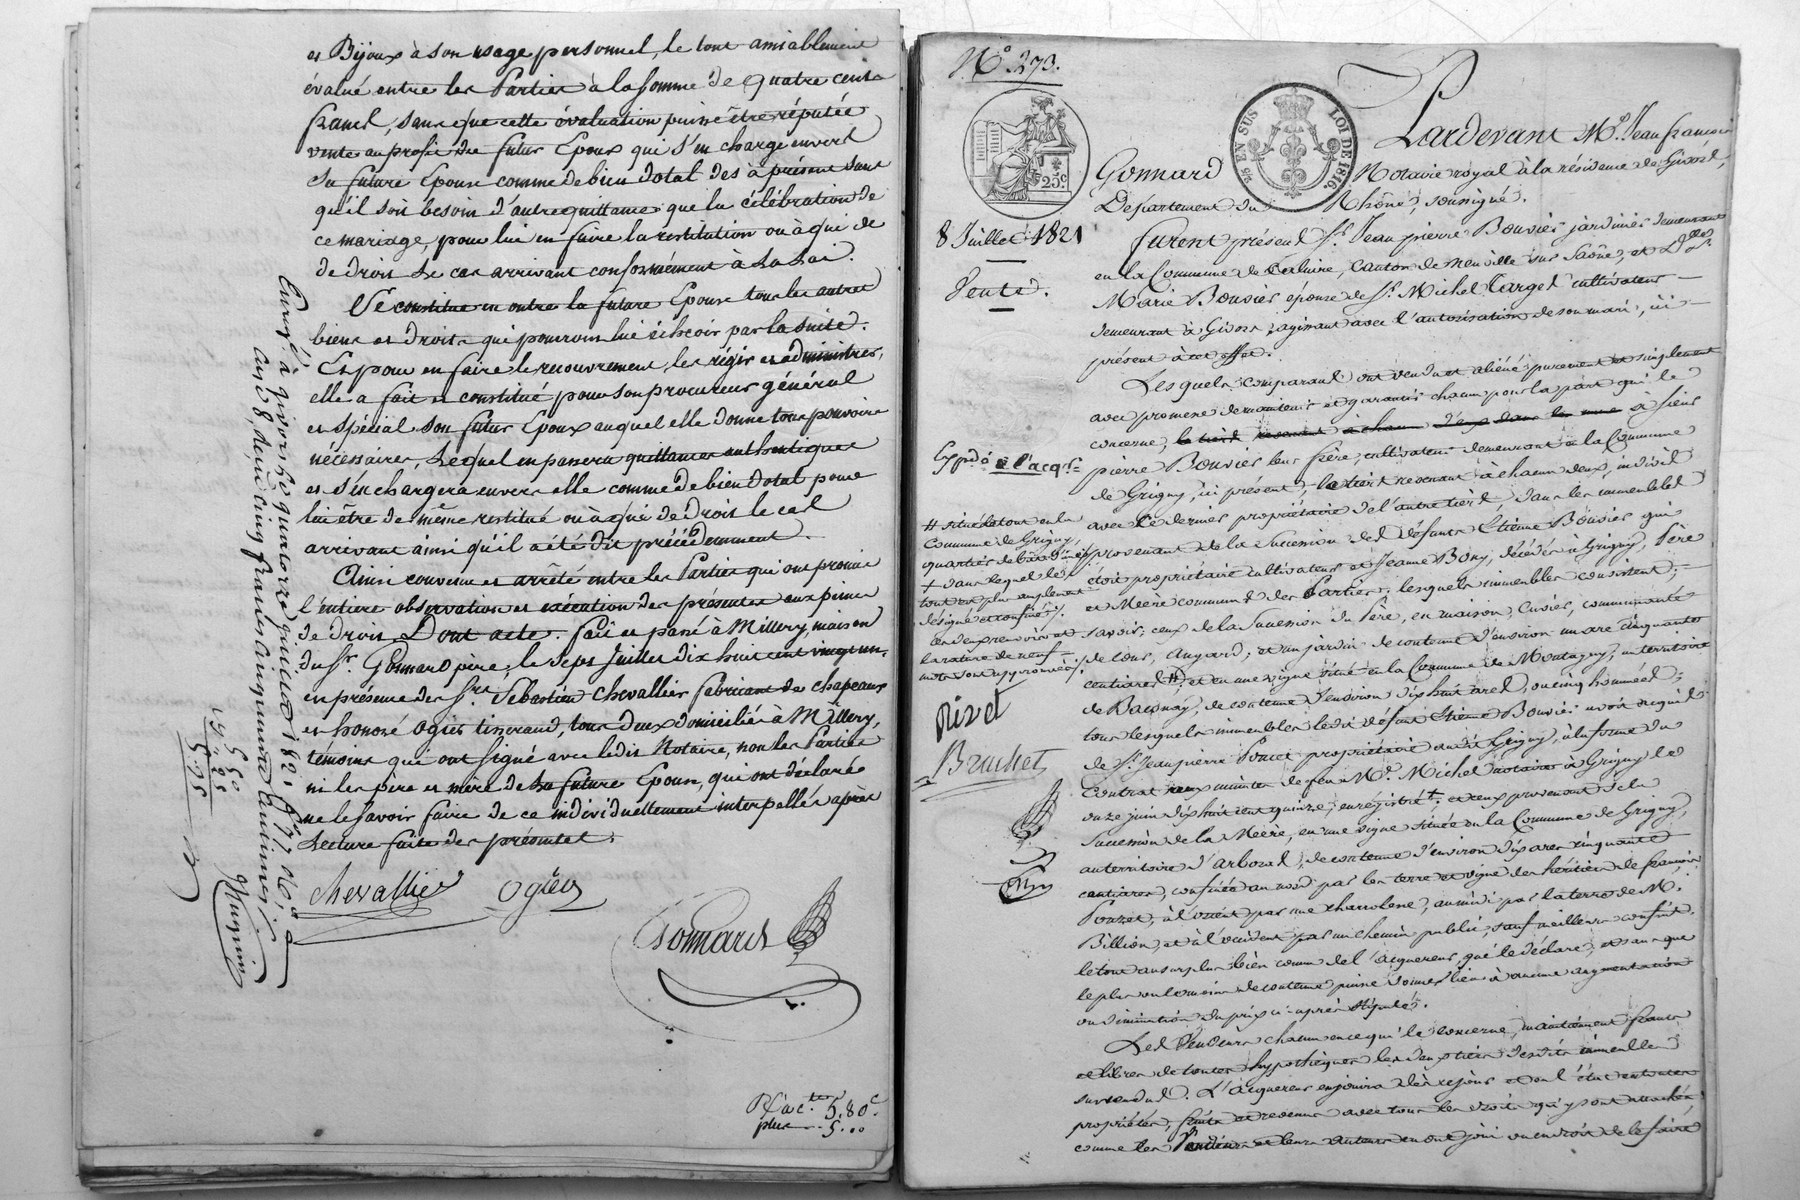 et Bijoux à son usage personnel, le tout amiablement
évalué entre les Parties à la somme de quatre cents
francs, sans que cette évaluation puisse être réputée
vente au profit du futur Epoux qui s'en charge envers
sa future Epouse comme de bien dotal dès à présent sans
qu'il soit besoin d'autre quittance que la célébration de
ce mariage, pour lui en faire la restitution ou à qui de
de droit le cas arrivant conformément à la Loi.
Se constitue en outre la future Epouse tous les autres
biens et droits qui pourront lui échoir par la suite.
Et pour en faire le recouvrement, les régir et administrer,
elle a fait et constitué pour son procureur général
et spécial son futur Epoux auquel elle donne tous pouvoirs
nécessaires, Lequel en passera quittances authentiques
et s'en chargera envers elle comme de bien dotal pour
lui être de même restitué ou à qui de droit le cas
arrivant ainsi qu'il a été dit précédemment.
Ainsi convenu et arrêté entre les Parties qui ont promis
l'entière observation et exécution des présentes aux peines
de droit. Dont acte. fait et passé à Millery, maison
du Sr. Gonnard père, le sept Juillet dix huit cent vingt un,
en présence des Srs. Sébastien Chevallier fabricant de chapeaux
et honoré Ogier tisserand, tous deux domiciliés à Millery,
témoins qui ont signé avec ledit Notaire, non les Parties
ni les père et mère de la future Epouse, qui ont déclaré
ne le savoir faire de ce individuellement interpellés après
Lecture faite des présentes.
Chevallier Ogier
Gonnard
Enregé à givors le quatorze juillet 1821 fo 77
cas 8, deux cinq francs cinquante centimes.
5.50
5.95
R. f. acte 5.80c.
plus 5...
No. 273.
EN SUS
LOI DE 1816.
25c.
Pardevant Me. Jean françois
Gonnard Notaire royal à la résidence de Givors,
Département du Rhône, soussigné.
8 Juillet 1821
Vente.
Furent présents Sr. Jean pierre Bouvier jardinier demeurant
en la Commune de Caluire, canton de Neuville sur Saône, et De.
Marie Bouvier épouse de Sr. Michel Targe cultivateur
demeurant à Givors, agissant avec l'autorisation de son mari, ici
présent à cet effet.
Lesquels comparants ont vendu et aliéné purement et simplement
avec promesse de maintenir et garantir chacun pour la part qui le
concerne, le tiers revenant à chacun d'eux dans les mus à Sieur
Expdé à l'acqr.
pierre Bouvier leur frère, cultivateur demeurant à la Commune
de Grigny, ici présent, le tiers revenant à chacun d'eux, indivis
avec ce dernier propriétaire de l'autre tiers, dans les immeubles
provenant de la Succession des défunts Etienne Bouvier qui
étoit propriétaire cultivateur et Jeanne Bony, décédés à Grigny, Père
et Mère communs des Parties, lesquels immeubles consistent,
savoir: ceux de la Succession du Père, en maison, Cuvier, communauté
de cour, angard, et un jardin de contenue d'environ un are cinquante
centiares #; et en une vigne située en la Commune de Montagny, au territoire
# situé le tout en la
Commune de Grigny,
+ dans lequel le
tout est plus amplement
désigné et confiné.
en deux renvois et
la rature de neuf
mots sont approuvés.
Rivet
Bruchet
de Baconay, de contenue d'environ dix huit ares, ou cinq hommées;
tous lesquels immeubles ledit défunt Etienne Bouvier avoit acquis
de Sr. Jean pierre Poncet propriétaire audit Grigny, à la forme du
Contrat reçu minute de feu Me. Michel notaire à Grigny le
onze juin dix huit cent quinze, enregistré +. et ceux provenant de la
Succession de la Mère, en une vigne située en la Commune de Grigny,
au territoire d'arboras, de contenue d'environ dix ares cinquante
centiares, confinée au nord par les terre et vigne des héritiers de françois
Pouzet, à l'orient par une charrolerie, au midi par la terre de M.
Billion, et à l'occident par un chemin public, sauf meilleurs confins.
le tout au surplus bien connu de l'acquéreur, qui le déclare, et sans que
le plus ou le moins de contenue puisse donner lieu à aucune augmentation
ou diminution du prix ci-après stipulé.
Les Vendeurs chacun en ce qui le concerne, maintiennent francs
et libres de toutes hypothèques les deux tiers desdits immeubles
sus vendus. L'acquéreur en jouira dès ce jour et en l'état
propriétés, fruits et revenus avec tous les droits qui y sont attachés
comme les Vendeurs et leurs auteurs en ont joui ou en droit de le faire